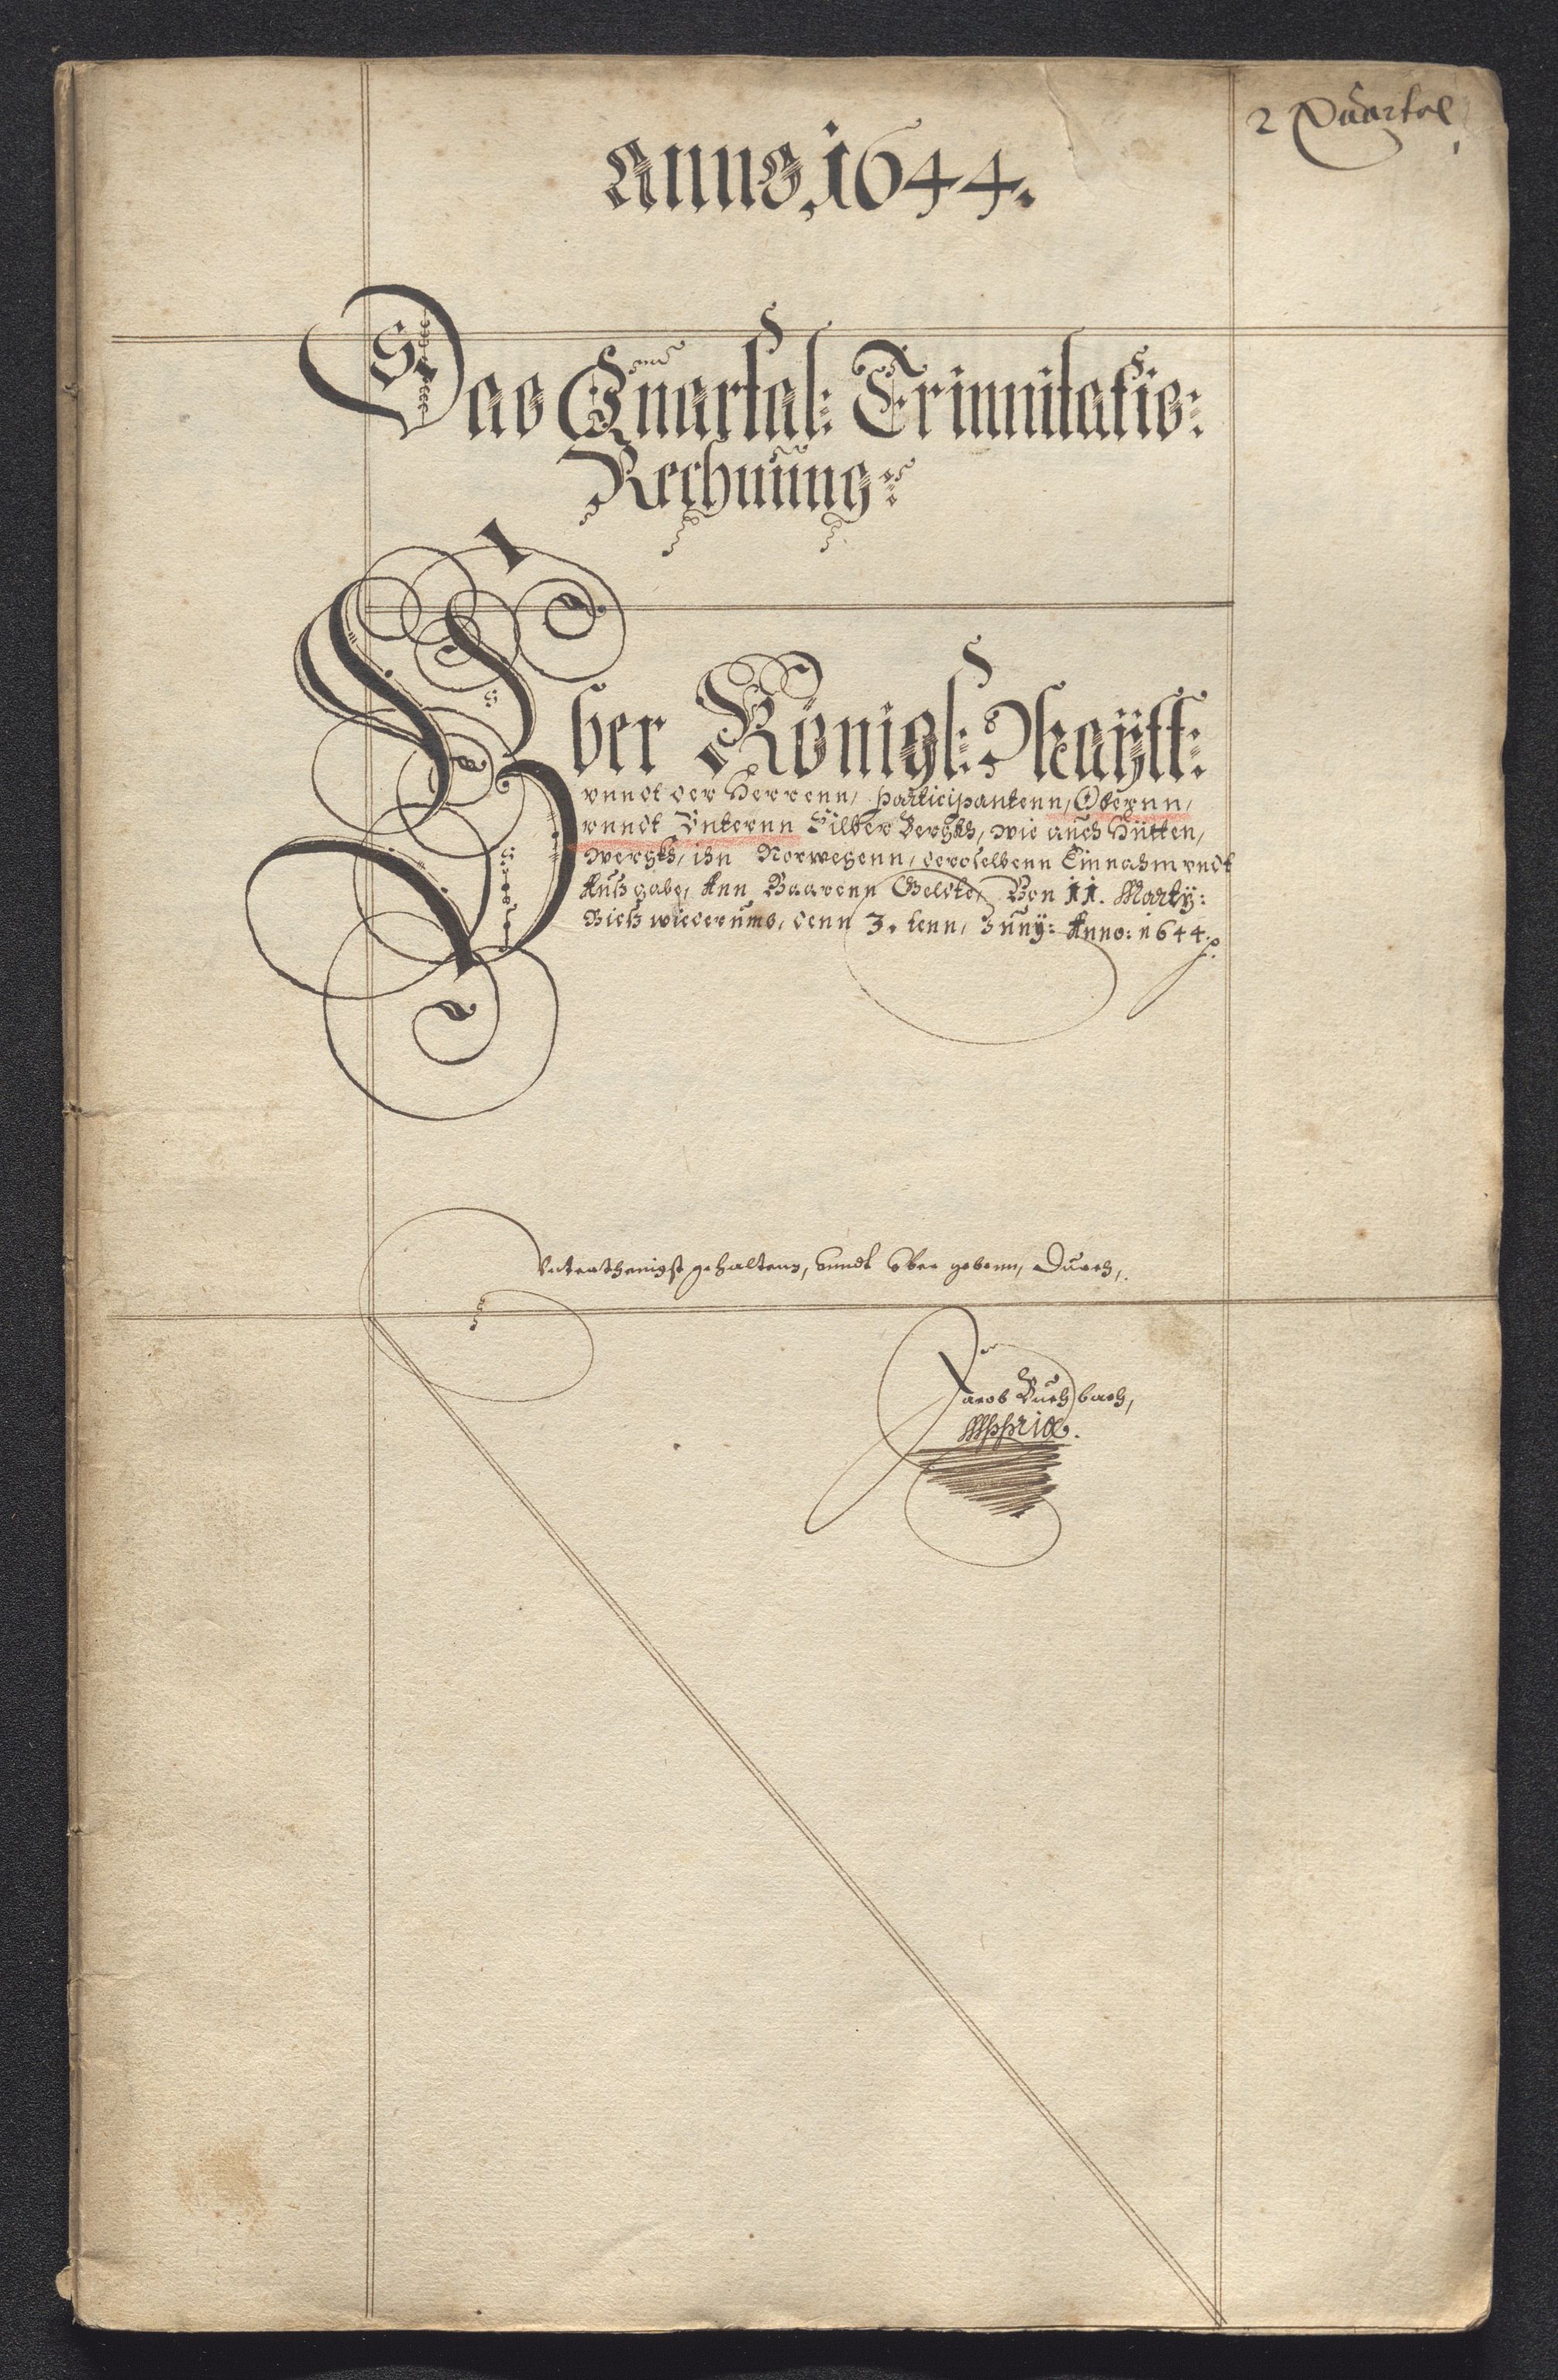 2 Quartal
Anno, 1644.
Das Quartal: Trinnitatis:
Rechnŭng:
Vber Königl: Maÿtt:
vnndt der Herrenn, participantenn, Obernn,
vnndt Vnternn Silber Bergkh, wie aŭch Hütten,
wergkh, ihn Norwegenn, deroselbenn Einnahm vndt
Aŭßgabe, Ann Baarenn Gelde, Von 11. Marty:
Bieß wiederŭmb, denn 3. tenn, Jŭny: Anno: 1644.
Vnterthenigst gehaltenn, vnndt vber gebenn, Dŭrch,
Jacob Bŭchbach,
Mppria.